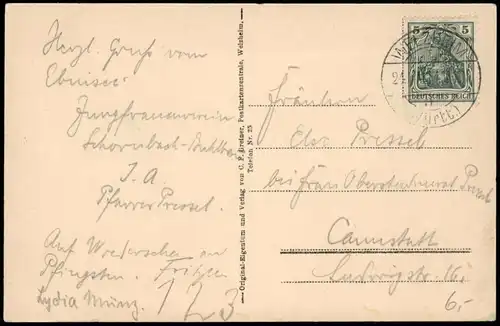 Herzl. Gruß vom
Ebnisee
Jungfrauenverein
Schornbach-
I. A.
Pfarrer Pressel.
Auf Wiedersehen an
Pfingsten.
Lydia Munz.
123
Original-Eigentum und Verlag von C. F. Kreiner, Postkartenzentrale, Welzheim.
Telefon Nr. 25
5 5
DEUTSCHES REICH
Fräulein
Else Pressel
bei Frau Oberstudienrat Pressel
Cannstatt
Ludwigstr. 16,
6,-